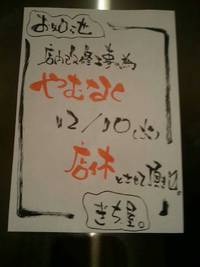 お知らせ
店内改修工事の為
やむなく
12/10(火)
店休
とさせて頂きます。
ぎち屋。